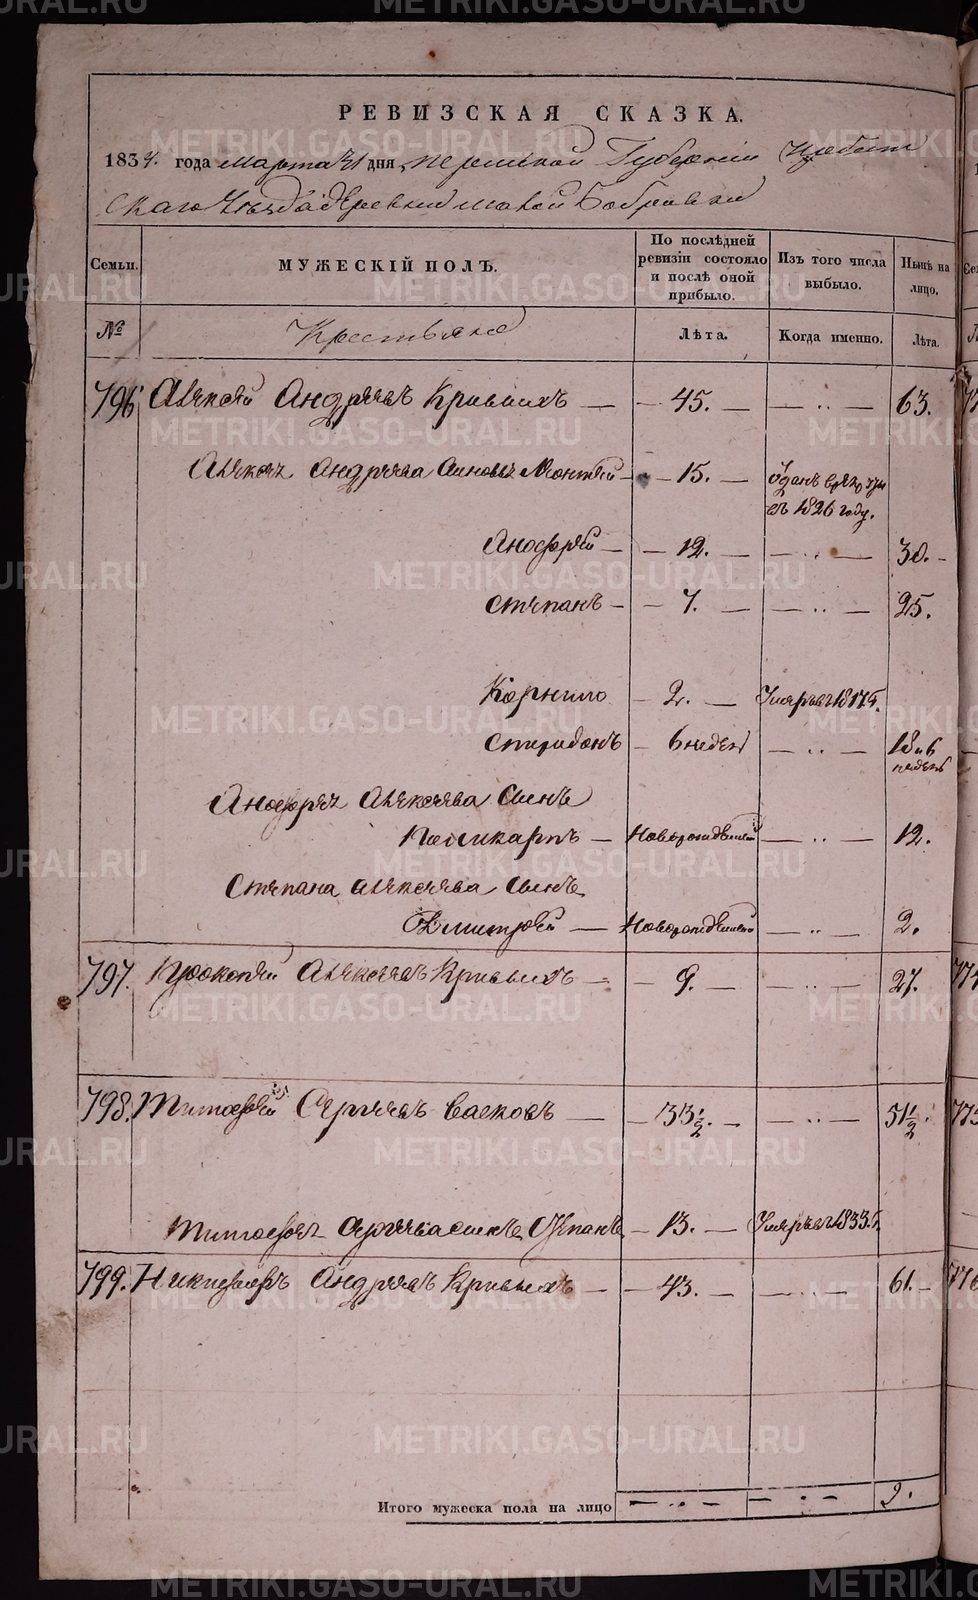 РЕВИЗСКАЯ СКАЗКА.
1834. года марта 31 дня, Пермской Губернии Ирбит
скаго Уезда деревни малой Бобровки
Семьи. МУЖЕСКІЙ ПОЛЪ. По послѣдней ревизіи состояло и послѣ оной прибыло. Изъ того числа выбыло. Нынѣ на лицо.
№ Крестьяне Лѣта. Когда именно. Лѣта.
796 Алексей Андреевъ Кривыхъ — 45. — — „ — 63.
Алексея Андреева сынъ — 15. — въ 1826 году.
Анофрей — 12. — — „ — 30.
Степанъ — 7. — — „ — 25.
Корнило — 2. — Умре въ 1817.
Спиридонъ — 6 недел — „ — 18 и 6 недель
Анофрея Алексеева сынъ
Поликарпъ — Новорожденной — „ — 12.
Степана Алексеева сынъ
Дмитрей — Новорожденной — „ — 2.
797. Прокопей Алексеевъ Кривыхъ — 9. — — „ — 27.
798. Тимофей Сергеевъ Васковъ — 33 1/2. — — „ — 51 1/2.
Тимофея Сергеева сынъ Степанъ — 13. — Умре въ 1833.
799. Никифоръ Андреевъ Кривыхъ — 43. — — „ — 61.
Итого мужеска пола на лицо — „ — — „ — 9.
METRIKI.GASO-URAL.RU